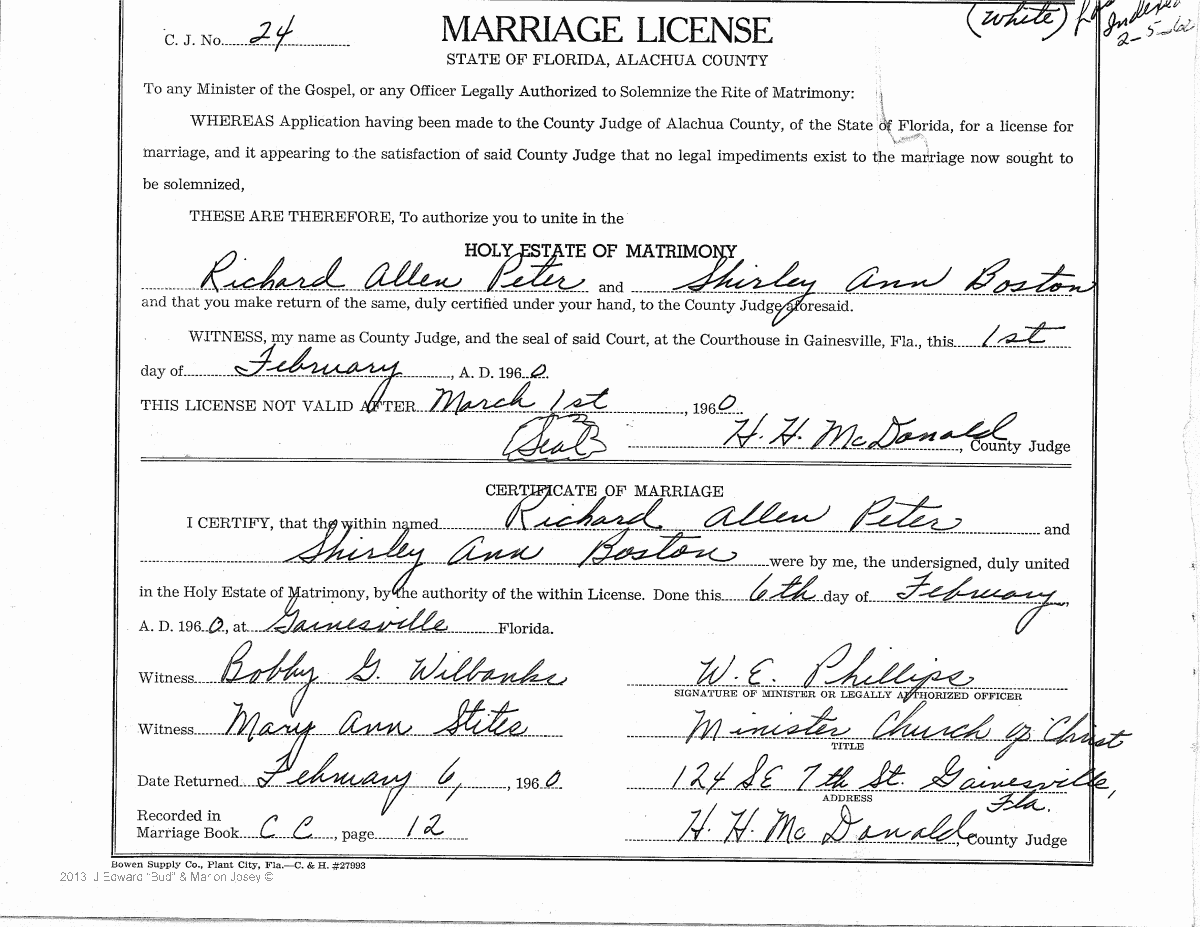 (White)
Indexed
2-5-62
C. J. No. 24
MARRIAGE LICENSE
STATE OF FLORIDA, ALACHUA COUNTY
To any Minister of the Gospel, or any Officer Legally Authorized to Solemnize the Rite of Matrimony:
WHEREAS Application having been made to the County Judge of Alachua County, of the State of Florida, for a license for
marriage, and it appearing to the satisfaction of said County Judge that no legal impediments exist to the marriage now sought to
be solemnized,
THESE ARE THEREFORE, To authorize you to unite in the
HOLY ESTATE OF MATRIMONY
Richard Allen Peter and Shirley Ann Boston
and that you make return of the same, duly certified under your hand, to the County Judge aforesaid.
WITNESS, my name as County Judge, and the seal of said Court, at the Courthouse in Gainesville, Fla., this 1st
day of February, A. D. 1960.
THIS LICENSE NOT VALID AFTER March 1st, 1960.
(Seal) H. H. McDonald, County Judge
CERTIFICATE OF MARRIAGE
I CERTIFY, that the within named Richard Allen Peter and
Shirley Ann Boston were by me, the undersigned, duly united
in the Holy Estate of Matrimony, by the authority of the within License. Done this 6th day of February,
A. D. 1960, at Gainesville Florida.
Witness Bobby G. Wilbanks W. E. Phillips
SIGNATURE OF MINISTER OR LEGALLY AUTHORIZED OFFICER
Witness Mary Ann Stites Minister Church of Christ
TITLE
Date Returned February 6, 1960 124 SE 7th St. Gainesville,
ADDRESS Fla.
Recorded in
Marriage Book CC, page 12 H. H. McDonald, County Judge
Bowen Supply Co., Plant City, Fla.—C. & H. #27993
2013 J Edward "Bud" & Marion Josey ©